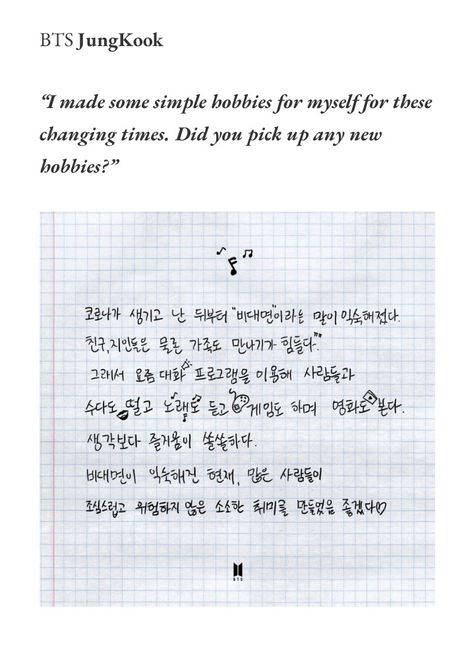 BTS JungKook
“I made some simple hobbies for myself for these
changing times. Did you pick up any new
hobbies?”
코로나가 생기고 난 뒤부터 "비대면"이라는 말이 익숙해졌다.
친구,지인들은 물론 가족도 만나기가 힘들다..
그래서 요즘 대화 프로그램을 이용해 사람들과
수다도 떨고 노래도 듣고 게임도 하며 영화도 본다.
생각보다 즐거움이 쏠쏠하다.
비대면이 익숙해진 현재, 많은 사람들이
조심스럽고 위험하지 않은 소소한 취미를 만들었음 좋겠다♡
BTS